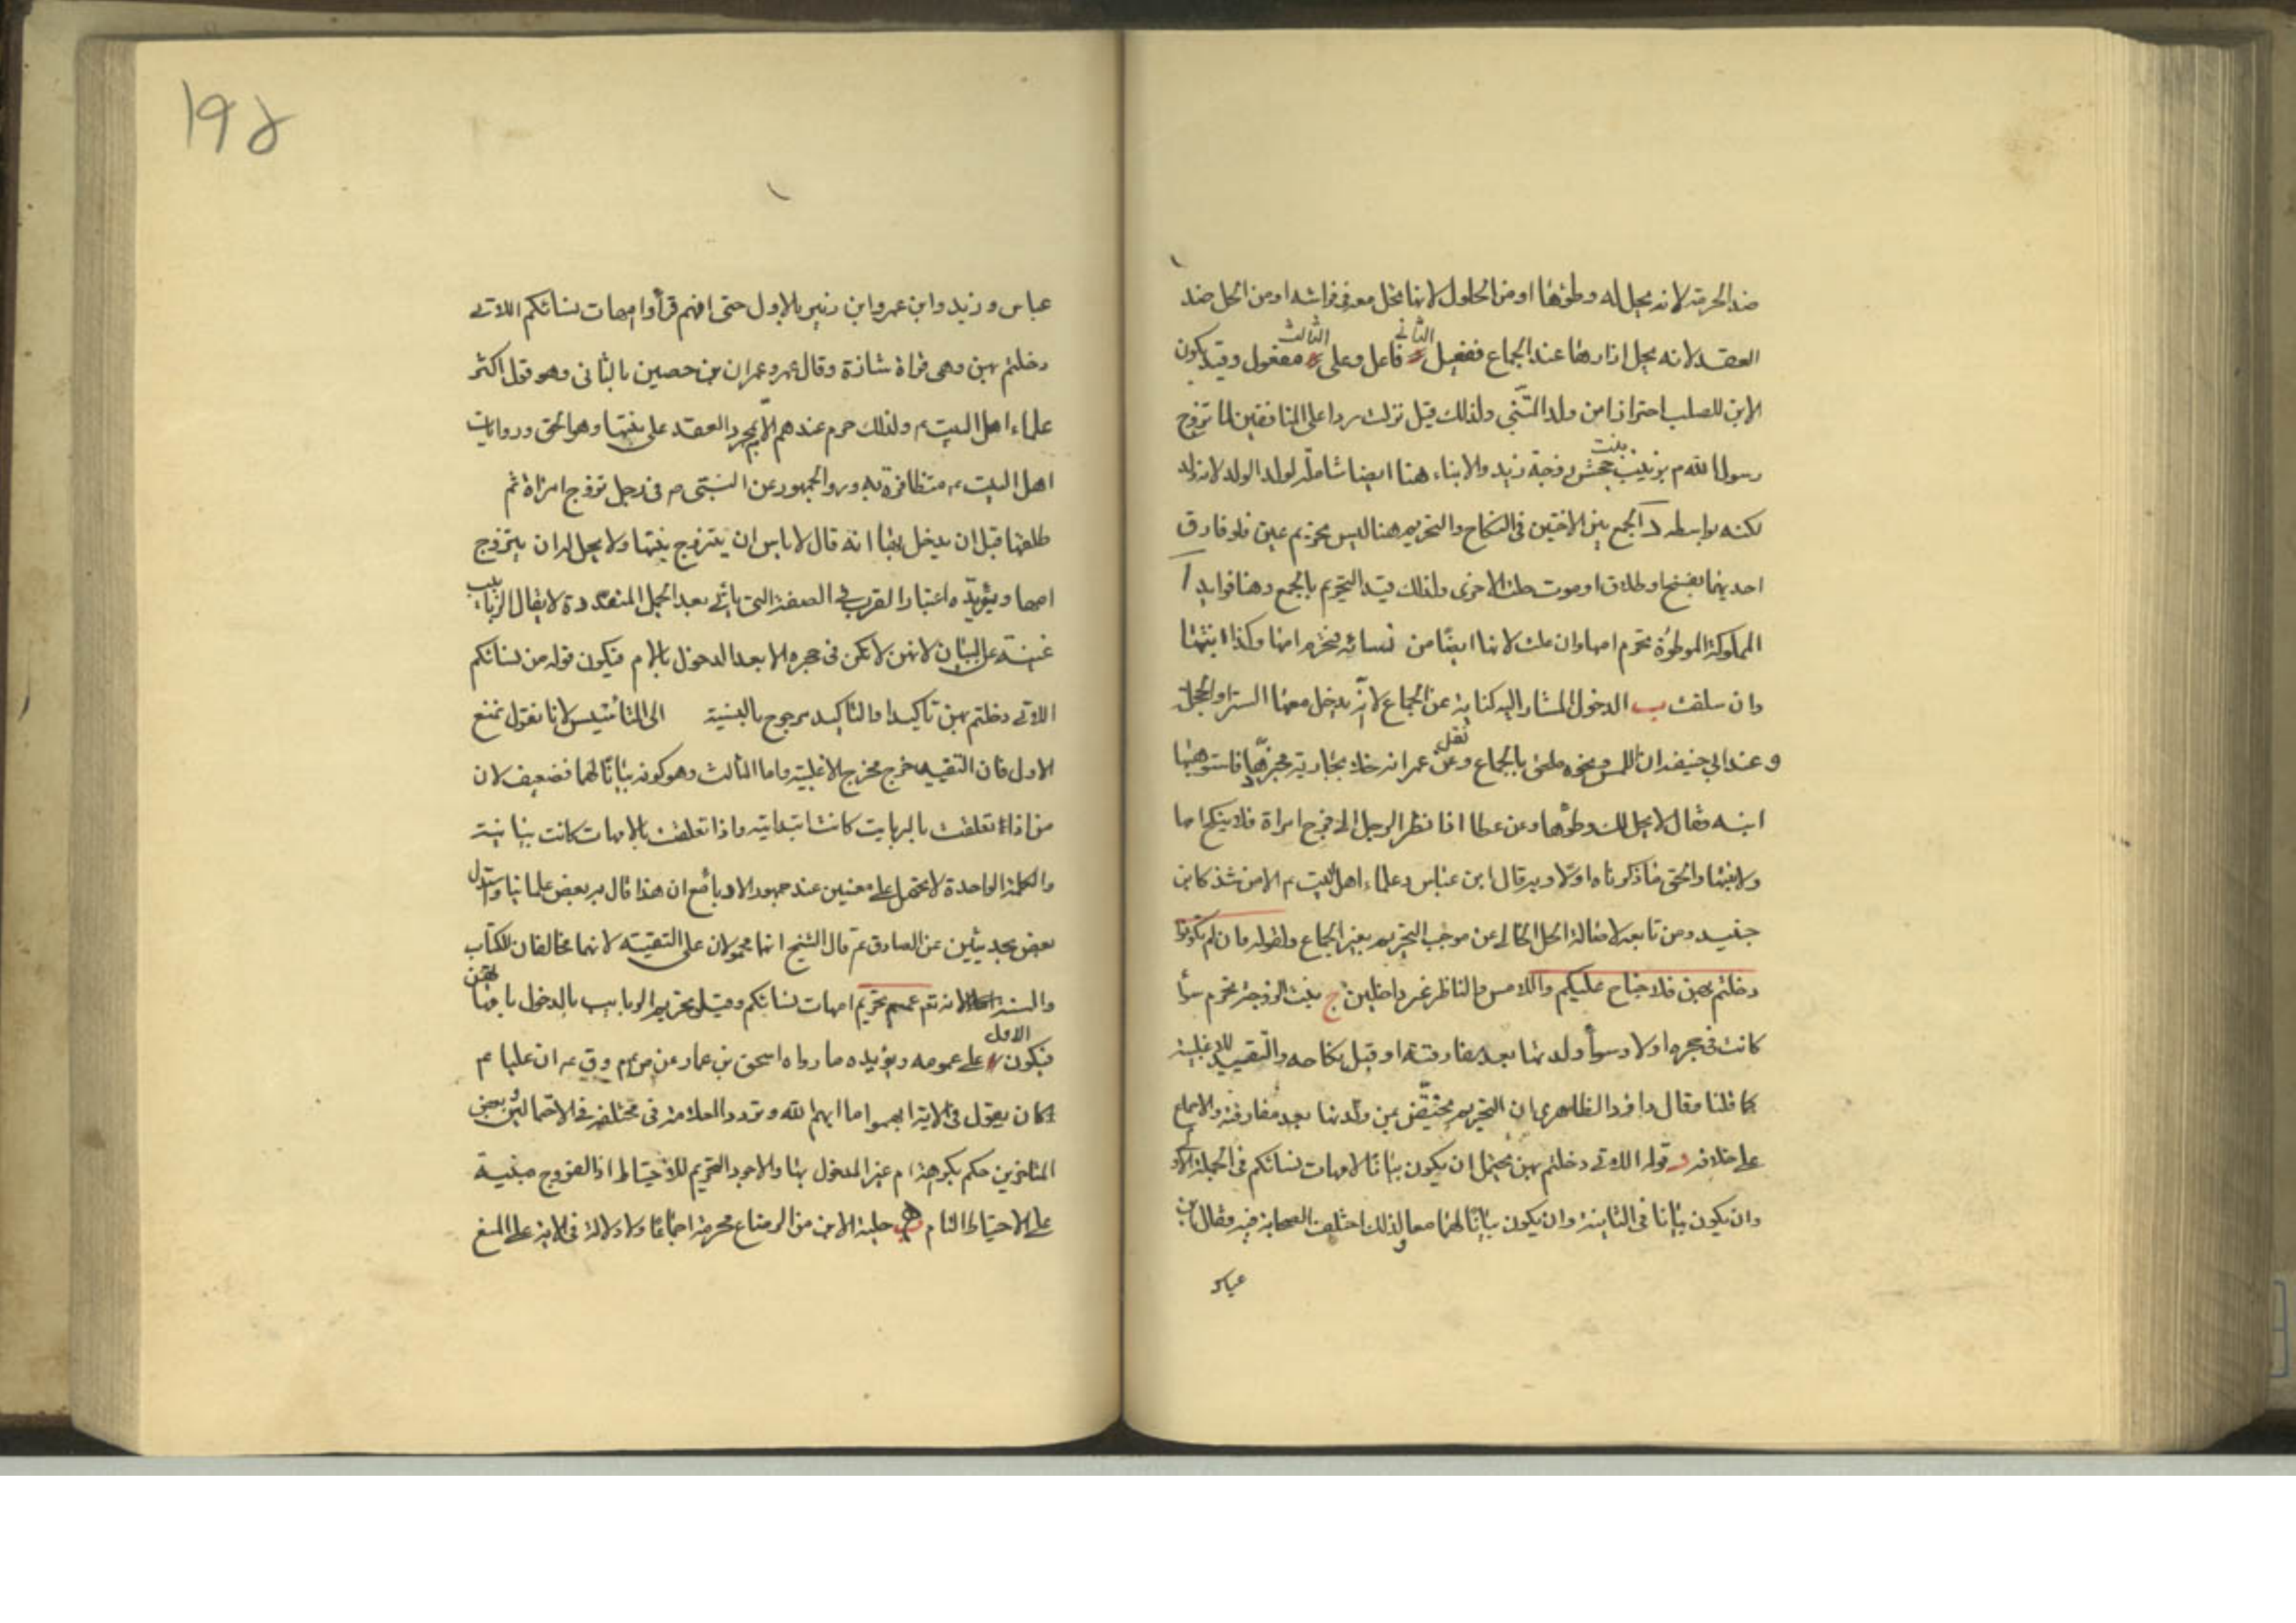 ضد الحرمة لانه يحل له وطؤها او من الحلول لانها تحل معه فى فراشه او من الحل ضد
العقد لانه يحل ازارها عند الجماع ففعيل الثانى فاعل وعلى الثالث مفعول وقيد كون
الابن للصلب احترازا من ولد التبنى ولذلك قيل نزلت ردا على المنافقين لما تزوج
رسول الله م بزينب بنت جحش زوجة زيد والابناء هنا ايضا شاملة لولد الولد لانه ولد
لكنه بواسطه د الجمع بين الاختين فى النكاح والتحريم هنا ليس تحريم عين فلو فارق
احديهما بفسخ او طلاق او موت حلت الاخرى ولذلك قيد التحريم بالجمع وهنا فوايد ا
المملوكة الموطوءة تحرم امها وان علت لانها ايضا من نسائه فتحرم امها وكذا ابنتها
وان سلفت ب الدخول المشار اليه كناية عن الجماع لانه يدخل معها الستر او الحجلة
وعند ابي حنيفة ان اللمس ونحوه ملحق بالجماع ونقل عن عمر انه خلا بجارية فجردها فاستوهبها
ابنه فقال لا يحل لك وطؤها وعن عطا اذا نظر الرجل الى فرج امراة فلا ينكح امها
ولا بنتها والحق ما ذكرناه اولا وبه قال ابن عباس وعلماء اهل البيت م الا من شذ كابن
جنيد ومن تابعه لاصالة الحل الخالى عن موجب التحريم بغير الجماع ولقوله فان لم تكونوا
دخلتم بهن فلا جناح عليكم واللامس والناظر غير داخلين ج بنت الزوجة تحرم سوأ
كانت فى حجره اولا وسوأ ولدتها بعد مفارقته او قبل نكاحه والتقييد للاغلبية
كما قلنا وقال داود الظاهرى ان التحريم مختص بمن ولدتها بعد مفارقته والاجماع
على خلافه د قوله اللاتى دخلتم بهن يحتمل ان يكون بيانا لامهات نسائكم فى الجملة الاولى
وان يكون بيانا فى الثانية وان يكون بيانا لهما معا ولذلك اختلف الصحابة فيه فقال ابن
عباس
۱۹۵
عباس وزيد وابن عمر وابن زبير بالاول حتى انهم قرأوا امهات نسائكم اللاتى
دخلتم بهن وهى قراة شاذة وقال عمر وعمران بن حصين بالثانى وهو قول اكثر
علماء اهل البيت م ولذلك حرم عندهم الام بمجرد العقد على بنتها وهو الحق وروايات
اهل البيت م متظافرة به وروا الجمهور عن النبى ص فى رجل تزوج امراة ثم
طلقها قبل ان يدخل بها انه قال لا باس ان يتزوج بنتها ولا يحل له ان يتزوج
امها ويؤيده اعتبار القرب فى الصفة التى ياتى بعد الجمل المتعددة لا يقال الربائب
غنية عن البيان لانهن لا تكن فى حجره الا بعد الدخول بالام فيكون قوله من نسائكم
اللاتى دخلتم بهن تأكيدا والتاكيد مرجوح بالنسبة الى التأسيس لانا نقول نمنع
الاول فان التقييد خرج مخرج الاغلبية واما الثالث وهو كونه بيانا لهما فضعيف لان
من اذا تعلقت بالربايب كانت ابتدائية واذا تعلقت بالامهات كانت بيانية
والكلمة الواحدة لا تحتمل على معنيين عند جمهور الادبا مع ان هذا قال به بعض علمائنا واستدل
بعض بحديثين عن الصادق ع قال الشيخ انهما محمولان على التقية لانهما مخالفان للكتاب
والسنة لانه تع عمم تحريم امهات نسائكم وقيد تحريم الربايب بالدخول بامهاتهن
فيكون الاول على عمومه ويؤيده ما رواه اسحق بن عمار عن ان عليا عم
كان يقول فى الاية ابهموا ما ابهم الله وتردد العلامة فى مختلفه فى الاحتمالين وبعض
المتاخرين حكم بكراهة ام غير المدخول بها والاجود التحريم للاحتياط اذ الفروج مبنية
على الاحتياط التام ه حليلة الابن من الرضاع محرمة اجماعا ولا دلالة فى الاية على المنع